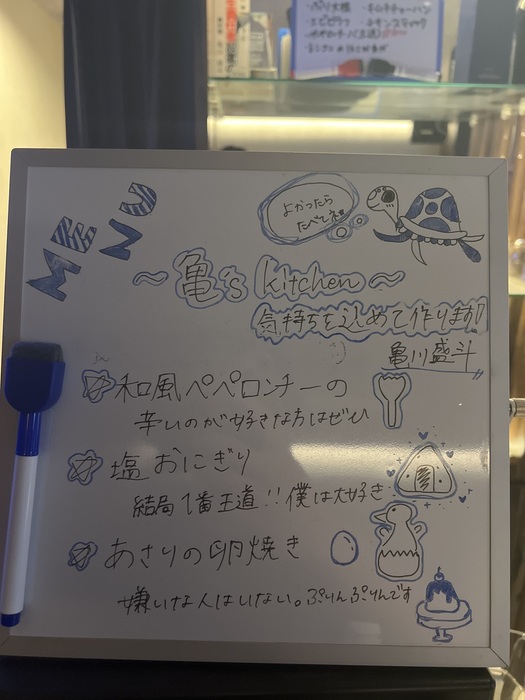 MENU
よかったら
たべてネ。
～亀's kitchen～
気持ちを込めて作ります!
亀川盛斗
和風ペペロンチーの
辛いのが好きな方はぜひ
塩おにぎり
結局1番王道!!僕は大好き
あさりの卵焼き
嫌いな人はいない。ぷりんぷりんです